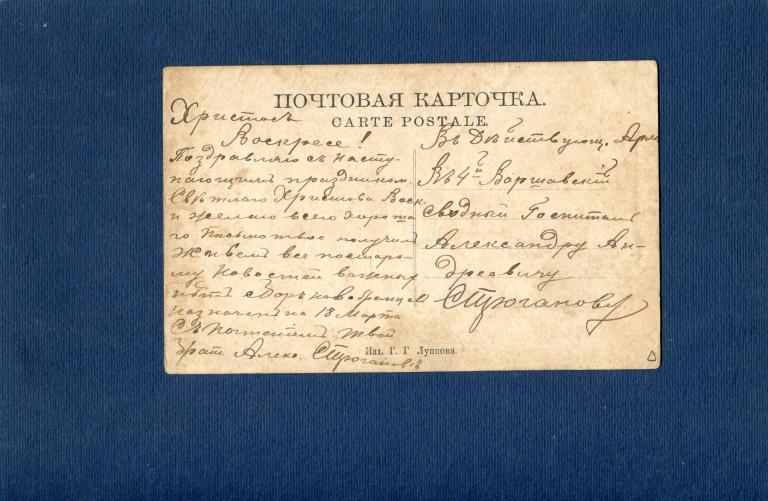 ПОЧТОВАЯ КАРТОЧКА.
CARTE POSTALE.
Христосъ
Воскресе!
Поздравляю съ насту-
пающимъ праздником.
Свѣтлаго Христова Воск.
и желаю всего хороша
го Письмо твое получилъ
Живемъ все постаро-
му Новостей важныхъ
нѣтъ сборъ новобранцем
назначенъ на 18 Марта
Съ почтенiемъ твой
Братъ Алекс. Строгановъ
Въ Дѣйствующ. Арм
Въ 4й Варшавскiй
Сводный Госпиталь
Александру Ан-
дреевичу
Строганову
Изд. Г. Г. Луппова.